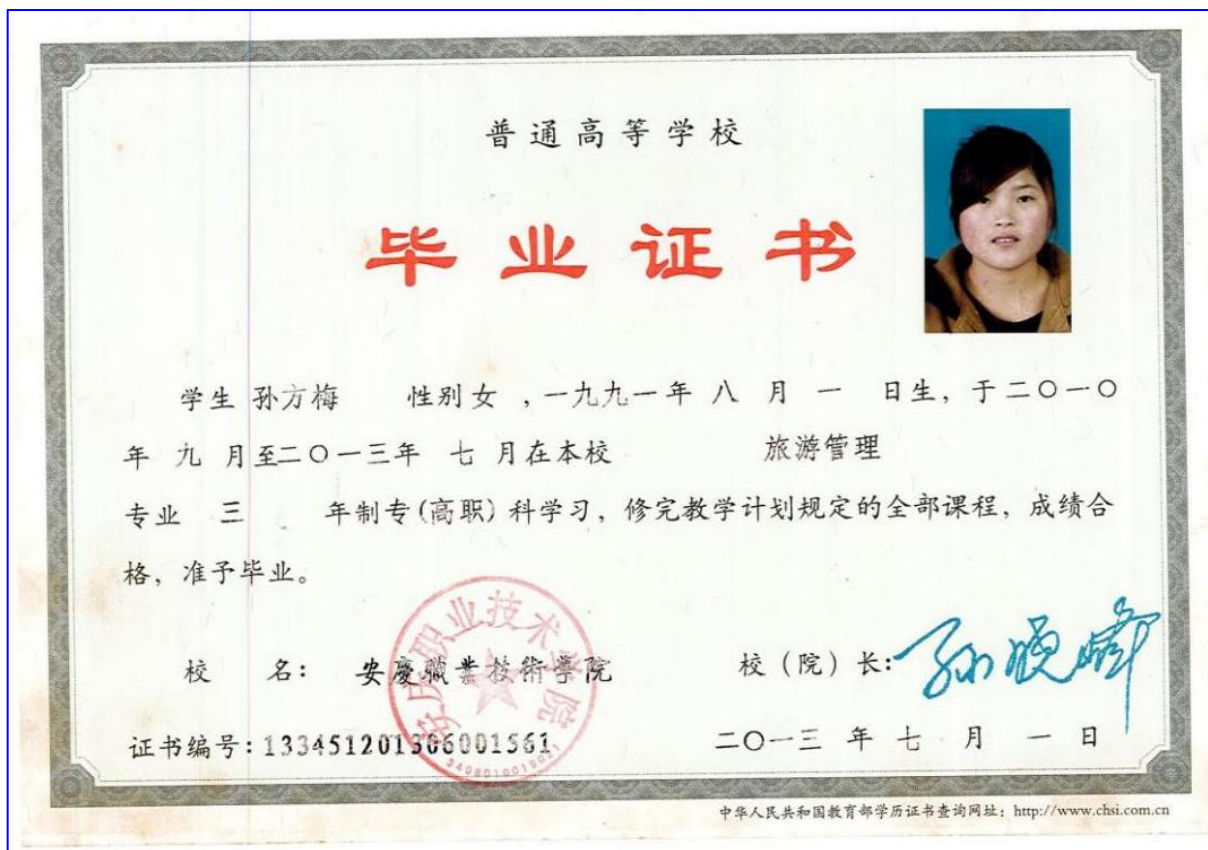 普通高等学校
毕业证书
学生 孙方梅 性别 女 ,一九九一年 八 月 一 日生，于二〇一〇
年 九 月至二〇一三年 七 月在本校 旅游管理
专业 三 年制专(高职)科学习，修完教学计划规定的全部课程，成绩合
格，准予毕业。
校 名： 安慶職業技術學院 校（院）长：
安庆职业技术学院
证书编号：133451201306001561 二〇一三 年 七 月 一 日
中华人民共和国教育部学历证书查询网址：http://www.chsi.com.cn